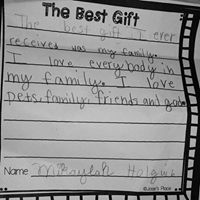 The Best Gift
The best gift I ever
receives was my family.
I love everybody in
my family. I love
pets, family, friends and god.
Name Mikaylah Holguin